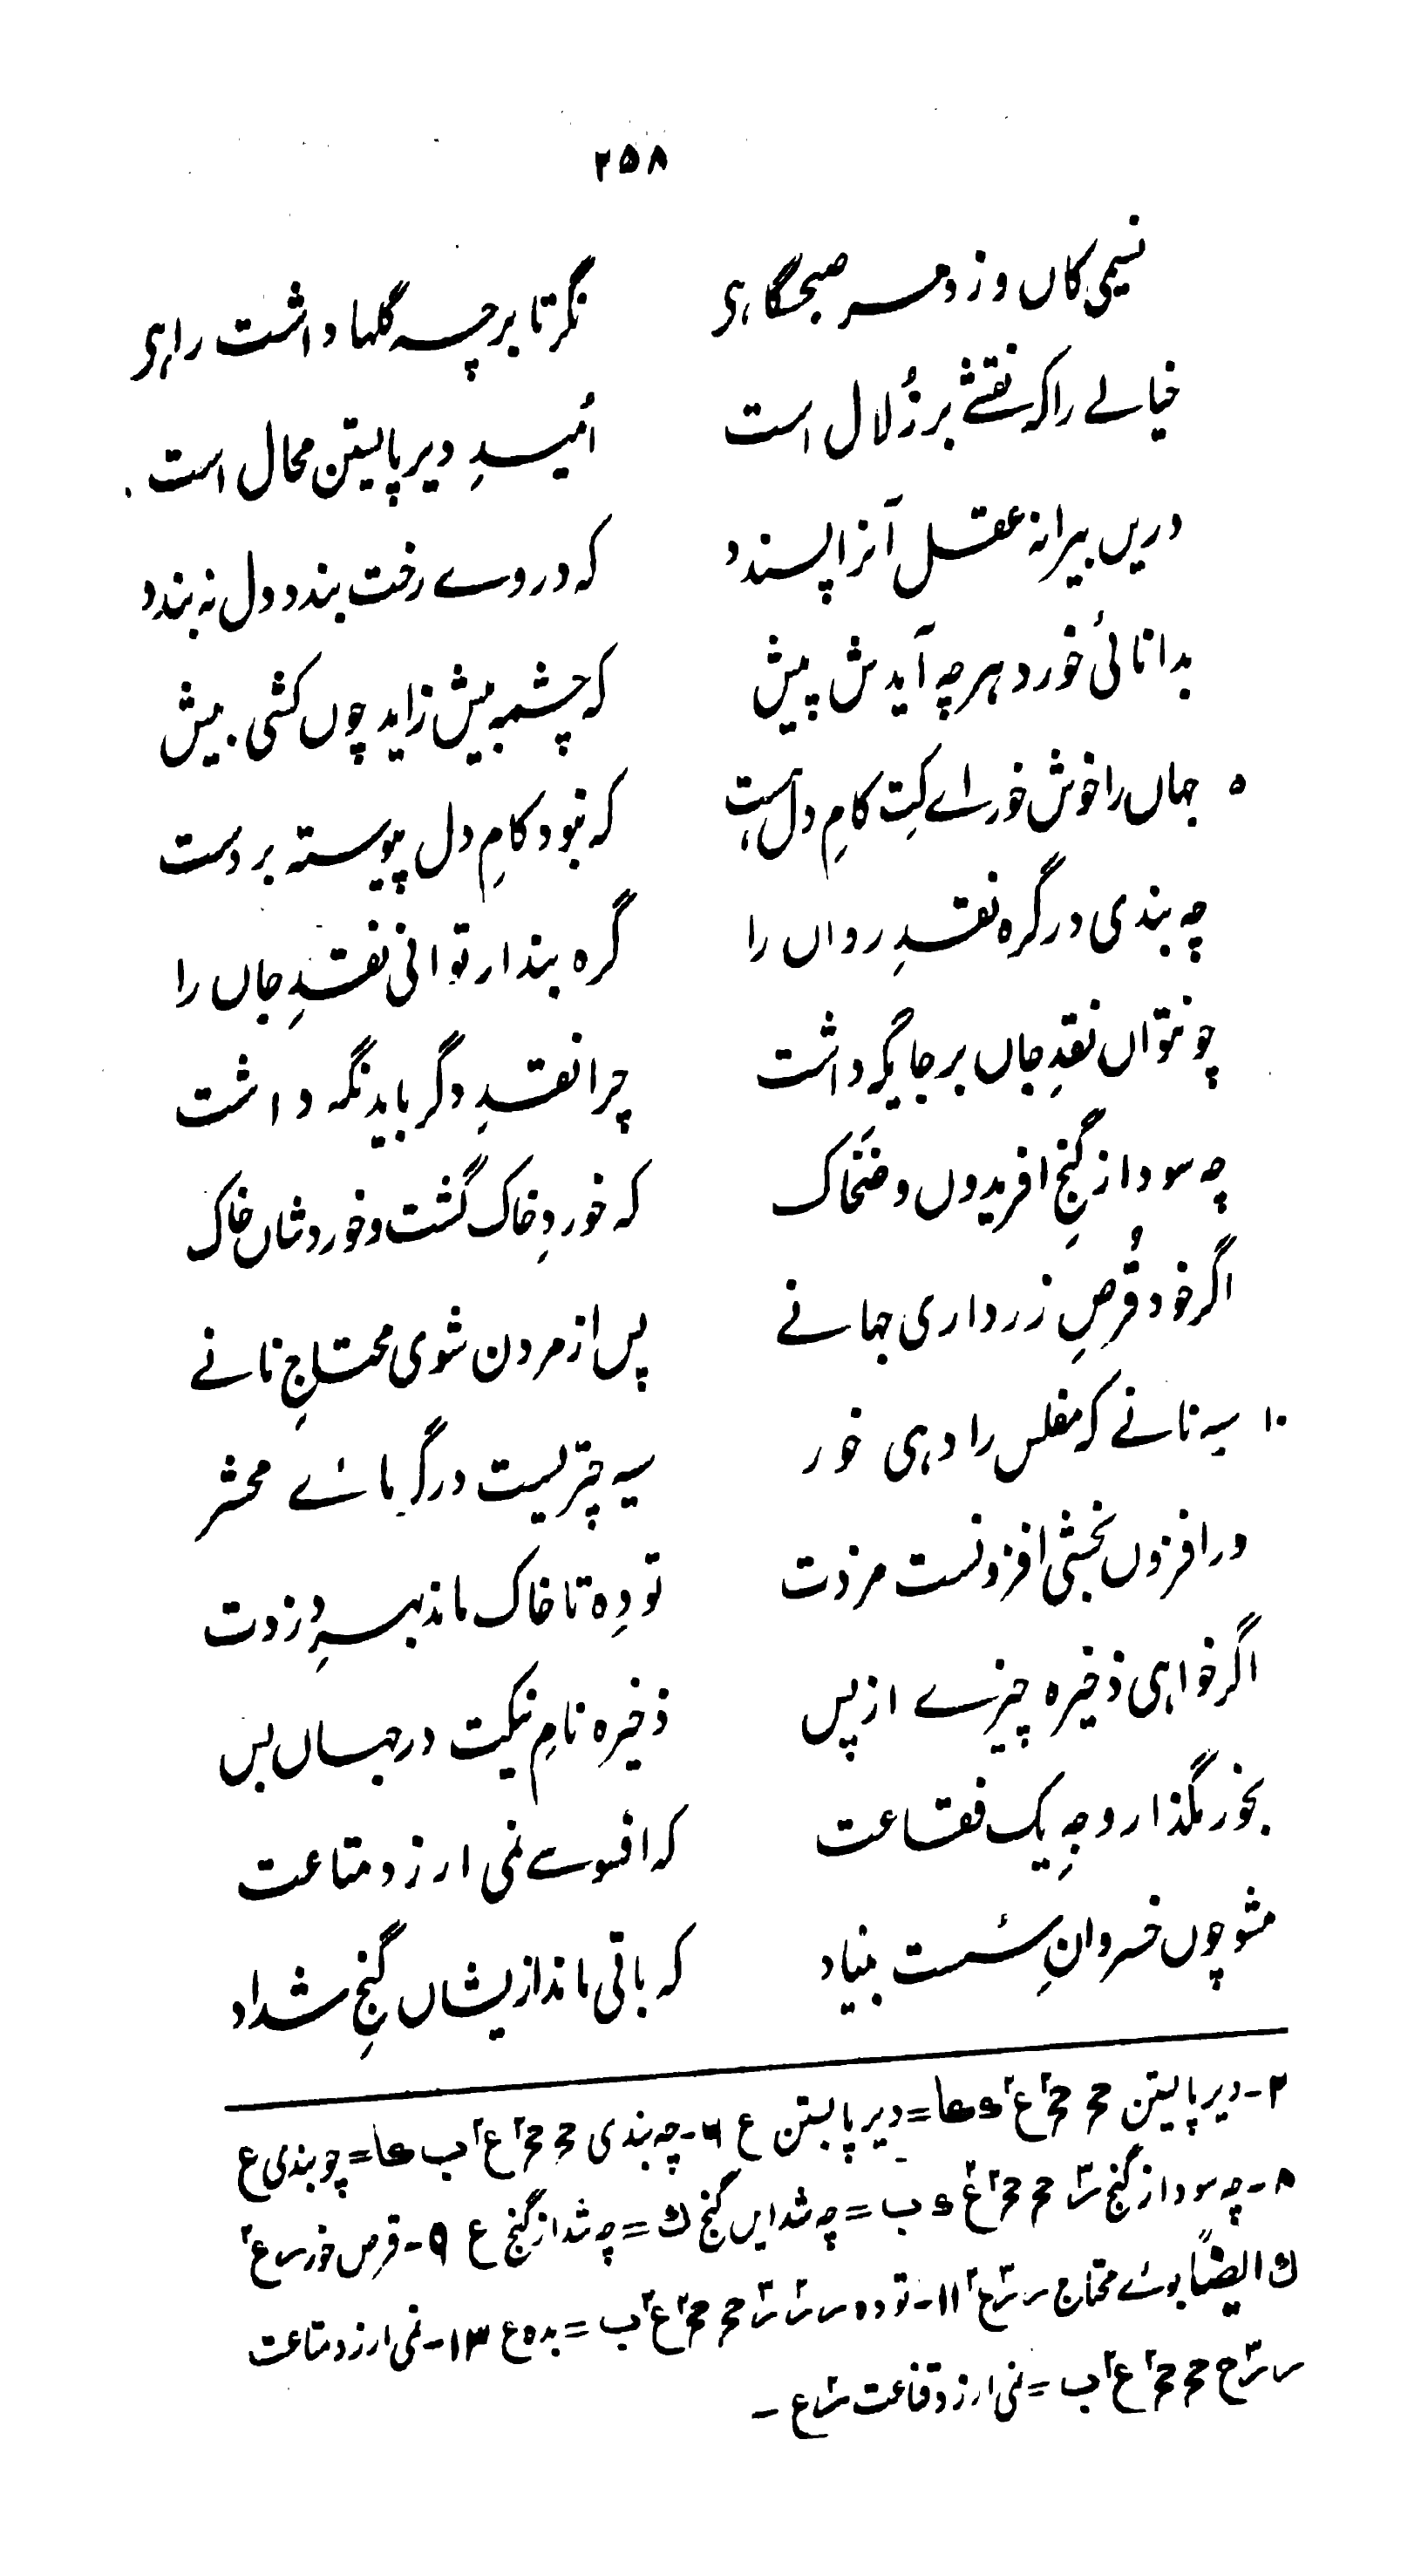 ۲۵۸
نسیمی کاں وزد ہر صبحگاہی نگر تا بر چہ گلہا داشت راہی
خیالے را کہ نقشے بر زُلال است اُمیدِ دیر پاییتن محال است
دریں بیرانہ عقل آنرا پسندد کہ در وے رخت بندد دل نہ بندد
بدانائی خورد ہر چہ آیدش پیش کہ چشمہ بیش زاید چوں کشی بیش
۵ جہاں را خوش خور اے کِت کامِ دل ہست کہ نبود کامِ دل پیوستہ بر دست
چہ بندی در گرہ نقدِ رواں را گرہ بند ار توانی نقدِ جاں را
چو نتواں نقدِ جاں بر جایگہ داشت چرا نقدِ دگر باید نگہ داشت
چہ سود از گنجِ افریدوں و ضحّاک کہ خوردِ خاک گشت و خوردشاں خاک
اگر خود قُرصِ زر داری جہانے پس از مردن شوی محتاجِ نانے
۱۰ سیہ نانے کہ مفلس را دہی خور سیہ چتریست در گرمائے محشر
ور افزوں بخشی افزونست مزدت تو دِہ تا خاک ماند بہرِ دُزدت
اگر خواہی ذخیرہ چیزے از پس ذخیرہ نامِ نیکت در جہاں بس
بخور مگذار وجہِ یک فقاعت کہ افسوسے نمی ارزد متاعت
مشو چوں خسروانِ سُست بنیاد کہ باقی ماند ازیشاں گنجِ شداد
۲- دیر پاییتن = دیر پابستن ع ۶- چہ بندی = چو بندی ع
۸- چہ سود از گنج = چہ شد ایں گنج ک = چہ شد از گنج ع ۹- قرص خور
ک ایضاً بوئے محتاج ۱۱- تو دہ = بدہ ع ۱۳- نمی ارزد متاعت
= نمی ارزد قناعت